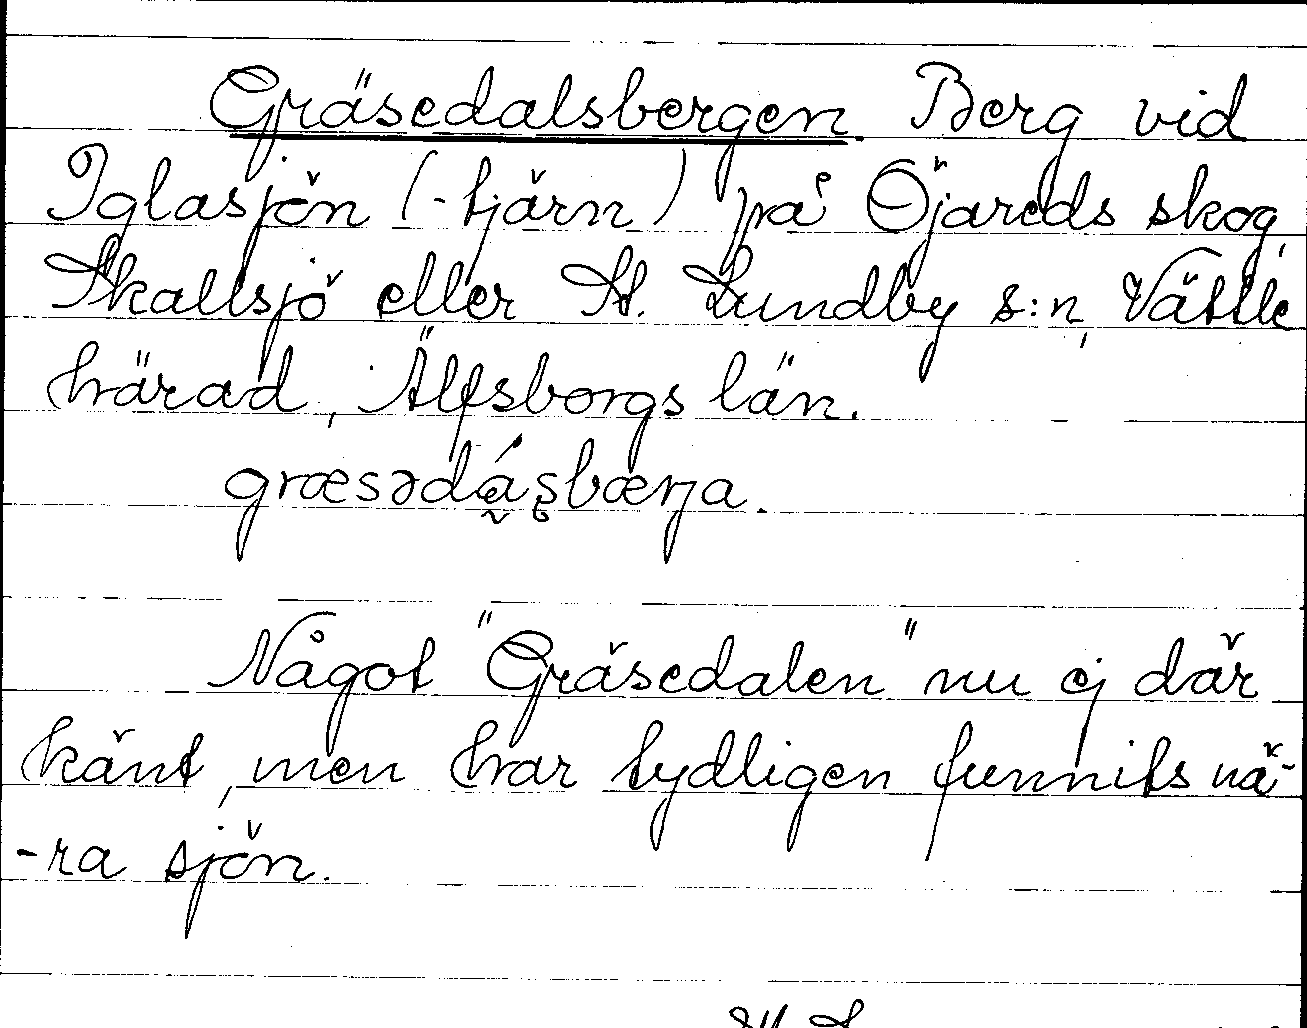 Gräsedalsbergen. Berg vid
Iglasjön (-tjärn) på Öjareds skog,
Skallsjö eller St. Lundby s:n, Vättle
härad, Älfsborgs län.
græsədásbæŋa.
Något "Gräsedalen" nu ej där
känt, men har tydligen funnits nä-
-ra sjön.